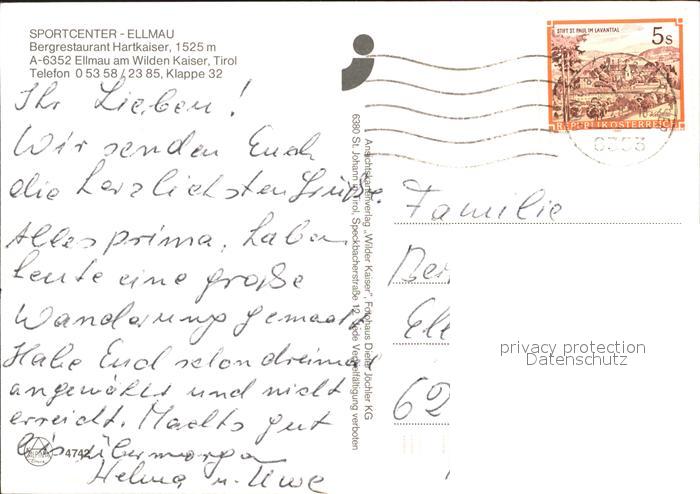 SPORTCENTER - ELLMAU
Bergrestaurant Hartkaiser, 1525 m
A-6352 Ellmau am Wilden Kaiser, Tirol
Telefon 0 53 58 / 23 85, Klappe 32
Ihr Lieben!
Wir senden Euch
die herzlichsten Grüße.
Alles prima, haben
heute eine große
Wanderung gemacht
Habe Euch schon dreimal
angewählt und nicht
erreicht. Machts gut
bis übermorgen
Helma u. Uwe
4742
Ansichtskartenverlag „Wilder Kaiser", Fotohaus Dieter Jöchler KG
6380 St. Johann in Tirol, Speckbacherstraße 12, Jede Vervielfältigung verboten
STIFT ST. PAUL IM LAVANTTAL
5s
REPUBLIK ÖSTERREICH
Familie
Ber
Ell
62
privacy protection
Datenschutz